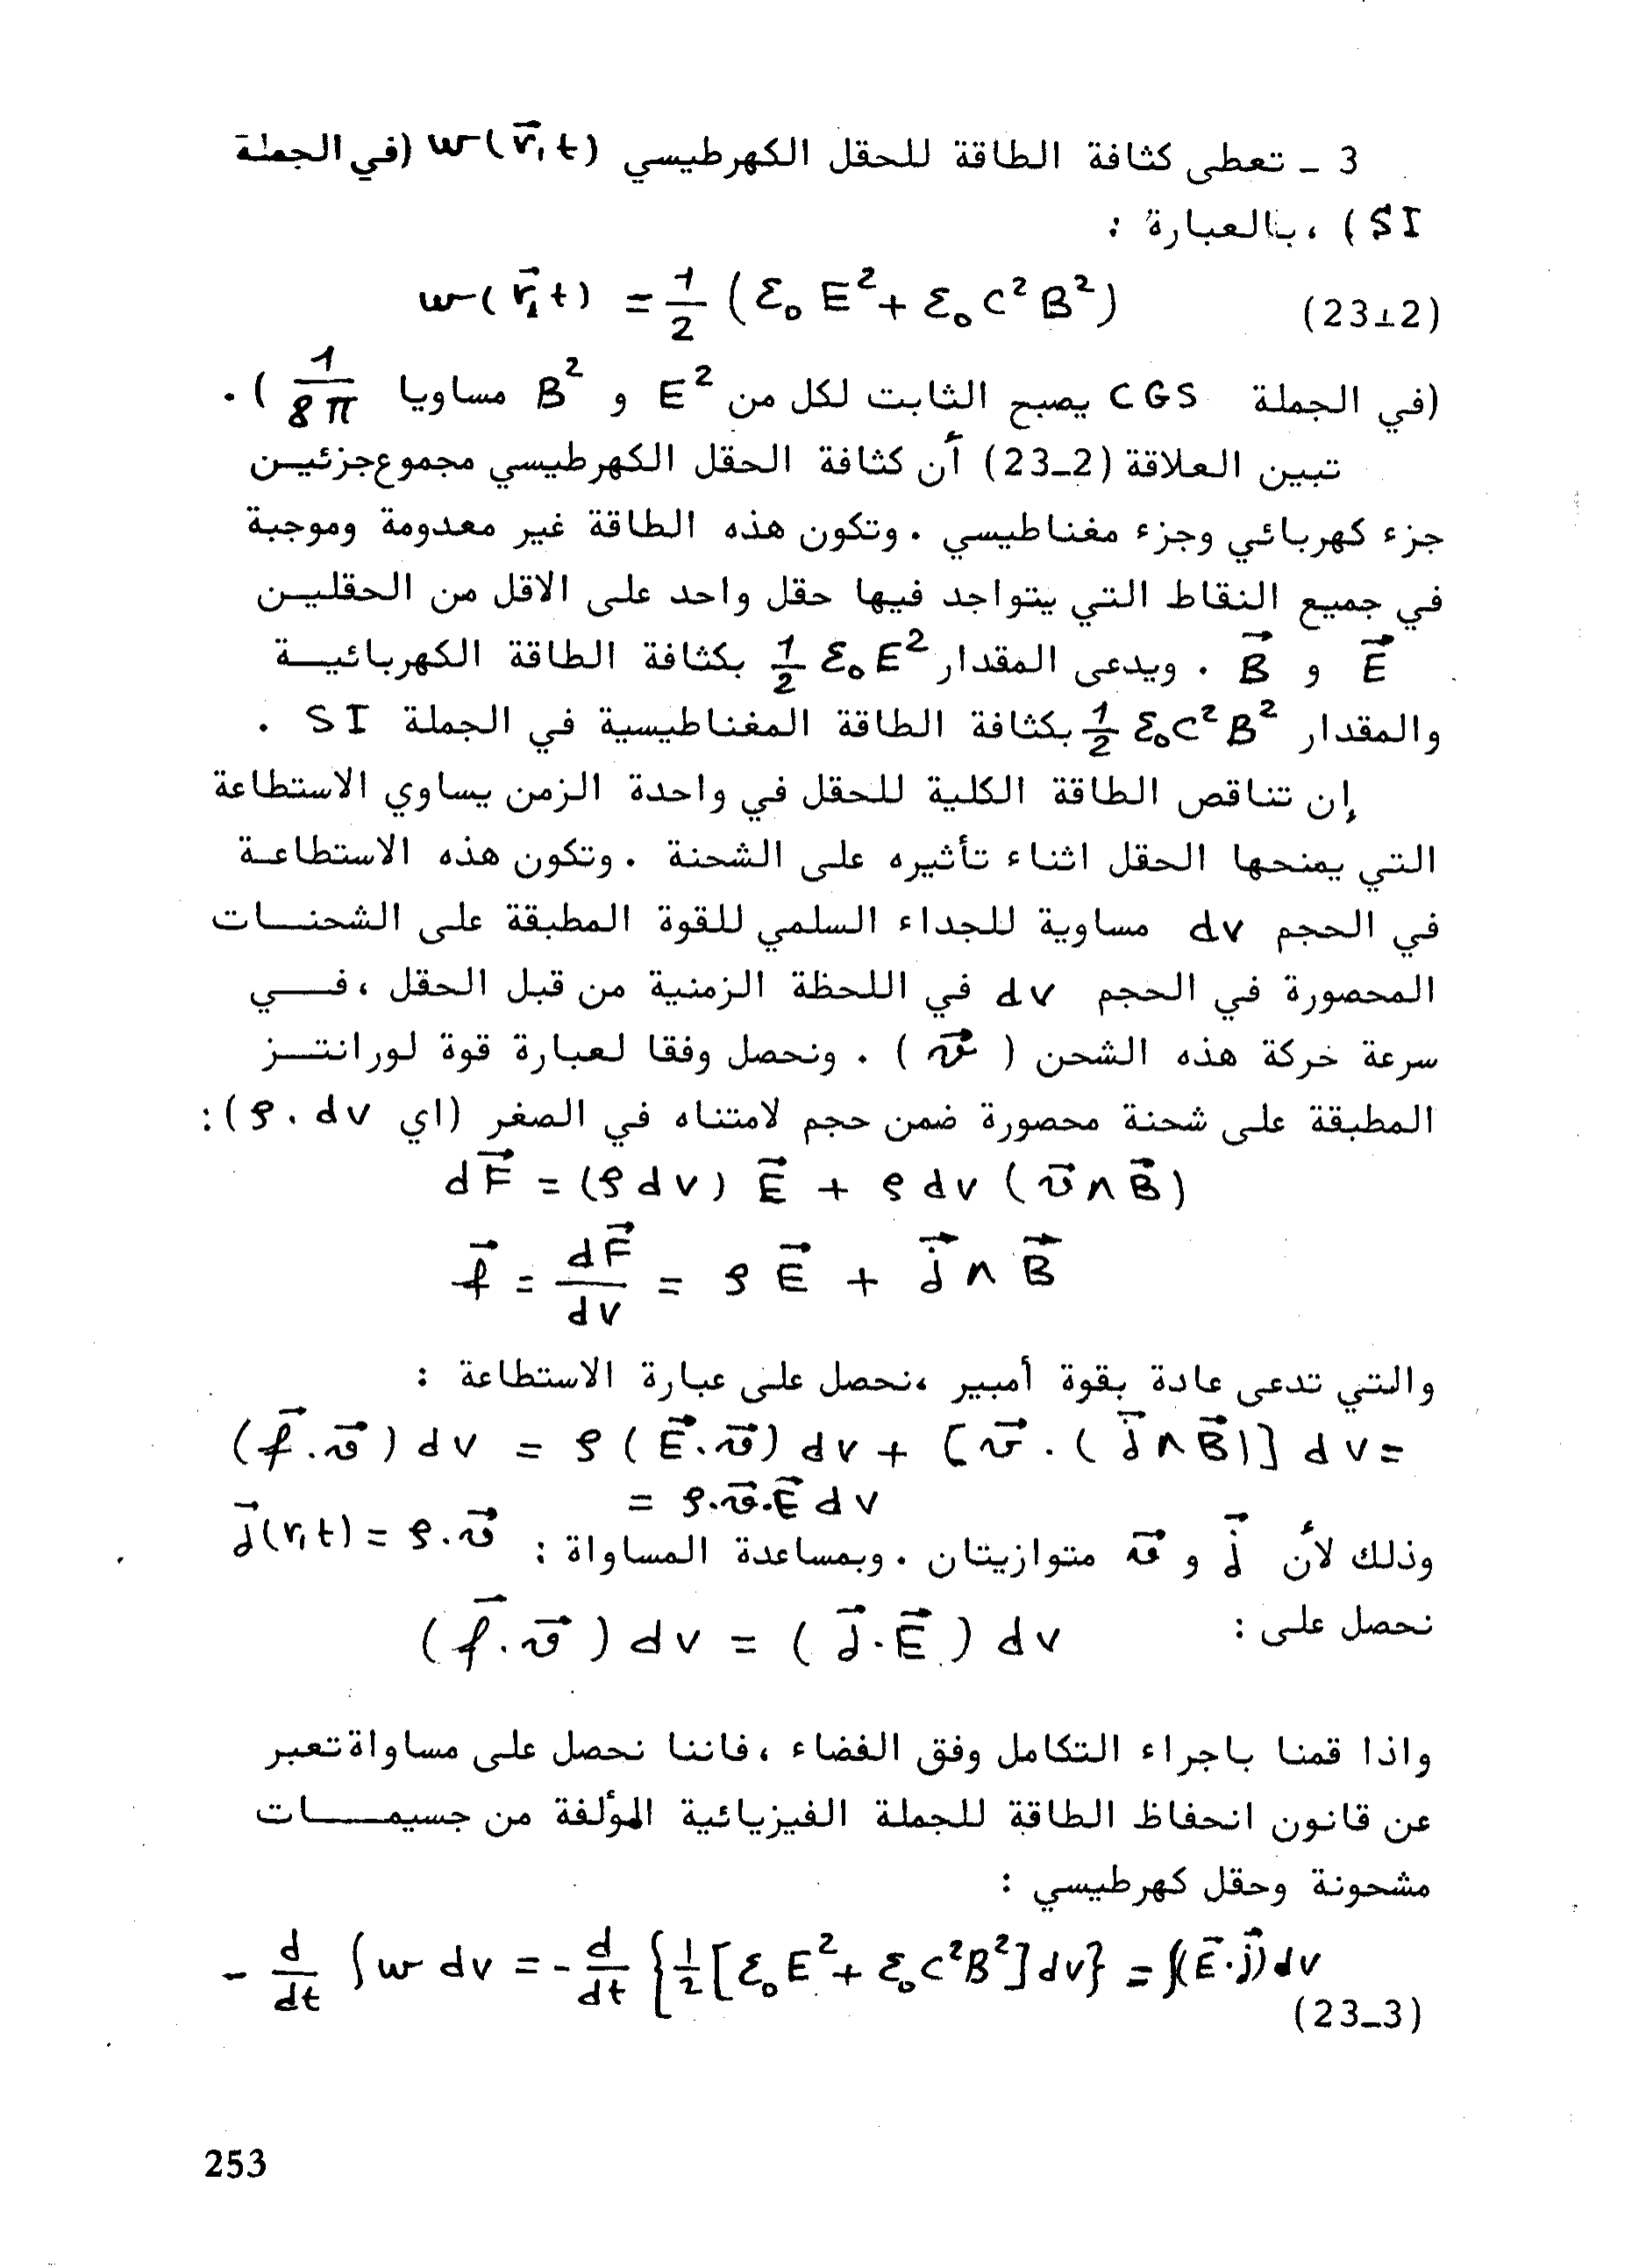 3 ـ تعطى كثافة الطاقة للحقل الكهرطيسي w(r⃗,t) (في الجملة
SI) ، بالعبارة :
w(r⃗,t) = 1/2 (ε₀ E² + ε₀ C² B²) (23-2)
(في الجملة CGS يصبح الثابت لكل من E² و B² مساويا 1/8π) .
تبين العلاقة (23-2) أن كثافة الحقل الكهرطيسي مجموع جزئيـن
جزء كهربائي وجزء مغناطيسي . وتكون هذه الطاقة غير معدومة وموجبة
في جميع النقاط التي يتواجد فيها حقل واحد على الاقل من الحقليـن
E⃗ و B⃗ . ويدعى المقدار 1/2 ε₀E² بكثافة الطاقة الكهربائيـة
والمقدار 1/2 ε₀C²B² بكثافة الطاقة المغناطيسية في الجملة SI .
إن تناقص الطاقة الكلية للحقل في واحدة الزمن يساوي الاستطاعة
التي يمنحها الحقل اثناء تأثيره على الشحنة . وتكون هذه الاستطاعـة
في الحجم dv مساوية للجداء السلمي للقوة المطبقة على الشحنـات
المحصورة في الحجم dv في اللحظة الزمنية من قبل الحقل ، فـي
سرعة خركة هذه الشحن ( v⃗ ) . ونحصل وفقا لعبارة قوة لورانتـز
المطبقة على شحنة محصورة ضمن حجم لامتناه في الصغر (اي ρ.dv) :
dF⃗ = (ρdv) E⃗ + ρdv (v⃗ ∧ B⃗)
f⃗ = dF⃗/dv = ρE⃗ + j⃗ ∧ B⃗
والتي تدعى عادة بقوة أمبير ، نحصل على عبارة الاستطاعة :
(f⃗.v⃗) dv = ρ(E⃗.v⃗) dv + [v⃗.(j⃗ ∧ B⃗)] dv =
= ρ.v⃗.E⃗ dv
وذلك لأن j⃗ و v⃗ متوازيتان . وبمساعدة المساواة : j⃗(r,t) = ρ.v⃗
نحصل على : (f⃗.v⃗) dv = (j⃗.E⃗) dv
واذا قمنا باجراء التكامل وفق الفضاء ، فاننا نحصل على مساواة تعبر
عن قانون انحفاظ الطاقة للجملة الفيزيائية المؤلفة من جسيمـات
مشحونة وحقل كهرطيسي :
- d/dt ∫w dv = - d/dt {1/2 [ε₀E² + ε₀C²B²] dv} = ∫(E⃗.j⃗) dv
(23-3)
253